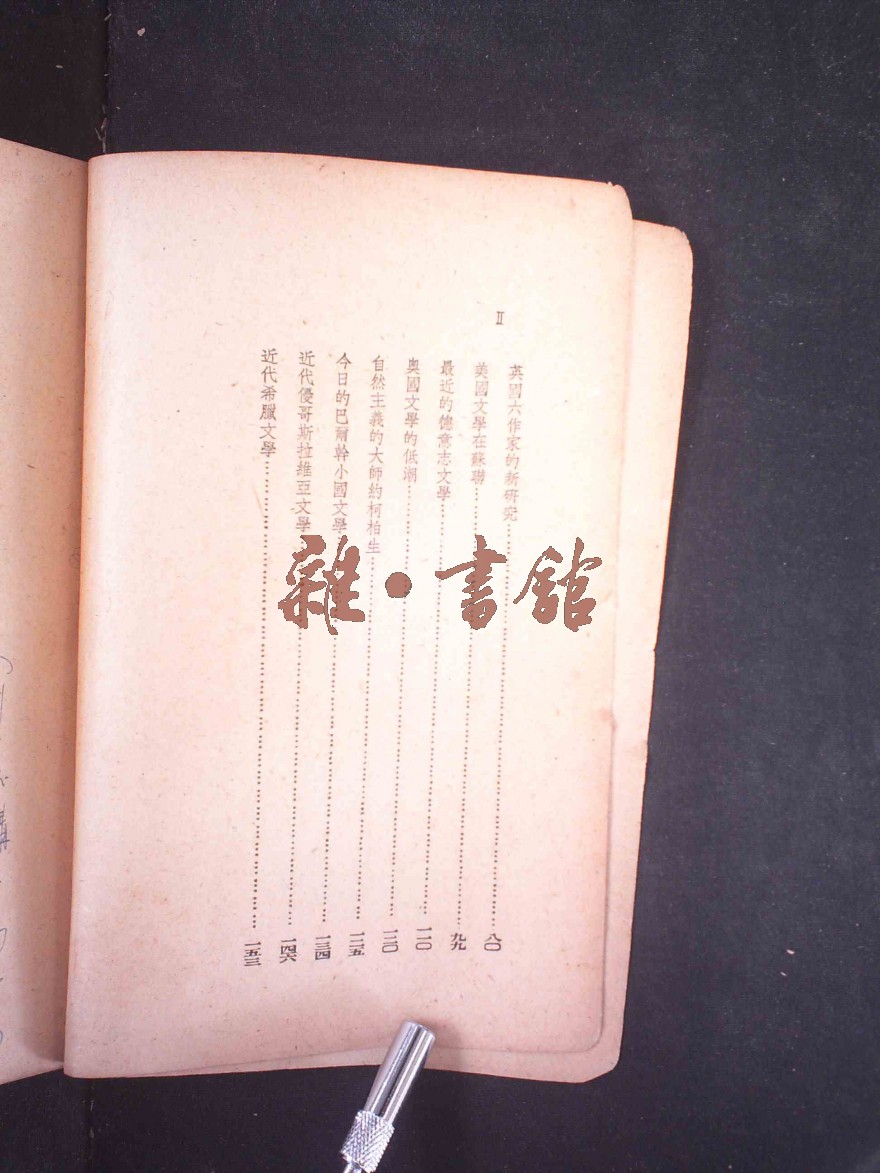 II
英國六作家的新研究……八〇
美國文學在蘇聯……九九
最近的德意志文學……一一〇
奧國文學的低潮……一二〇
自然主義的大師約柯柏生……一二五
今日的巴爾幹小國文學……一三四
近代優哥斯拉維亞文學……一四六
近代希臘文學……一五三
雜·書館